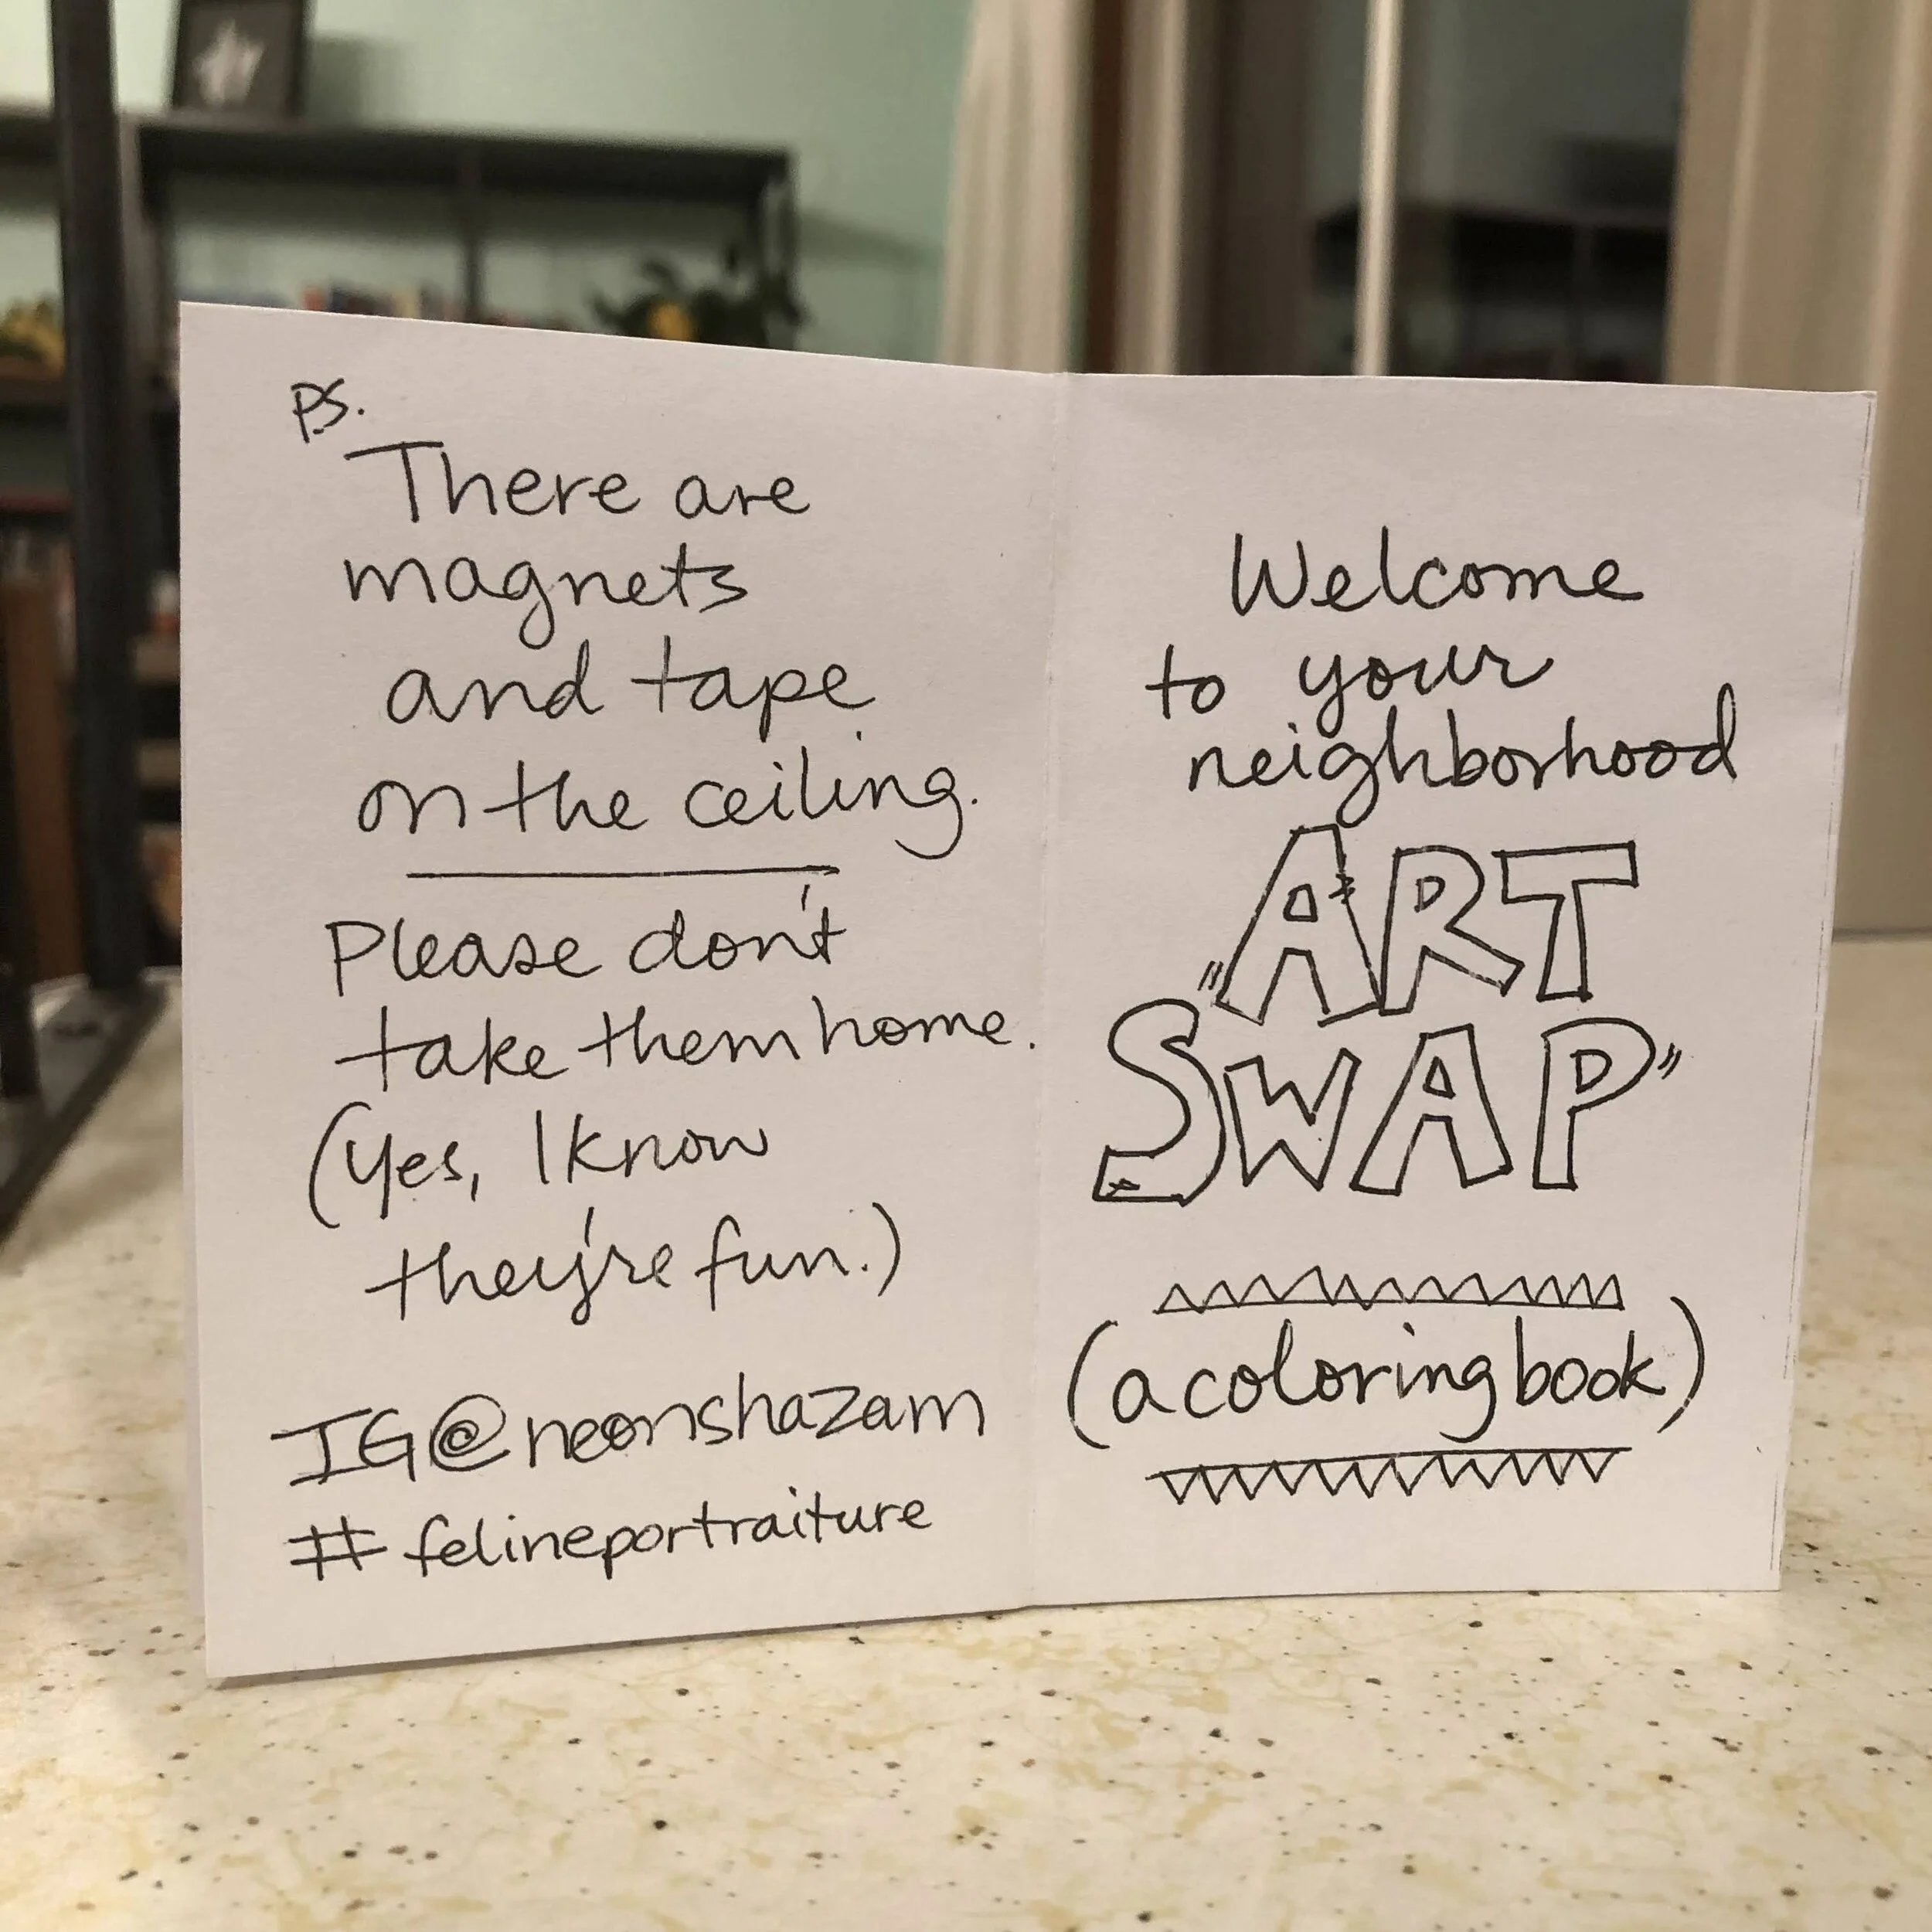 P.S.
There are
magnets
and tape
on the ceiling.
Please don't
take them home.
(Yes, I know
they're fun.)
IG@neonshazam
#felineportraiture
Welcome
to your
neighborhood
"ART
SWAP"
(a coloring book)